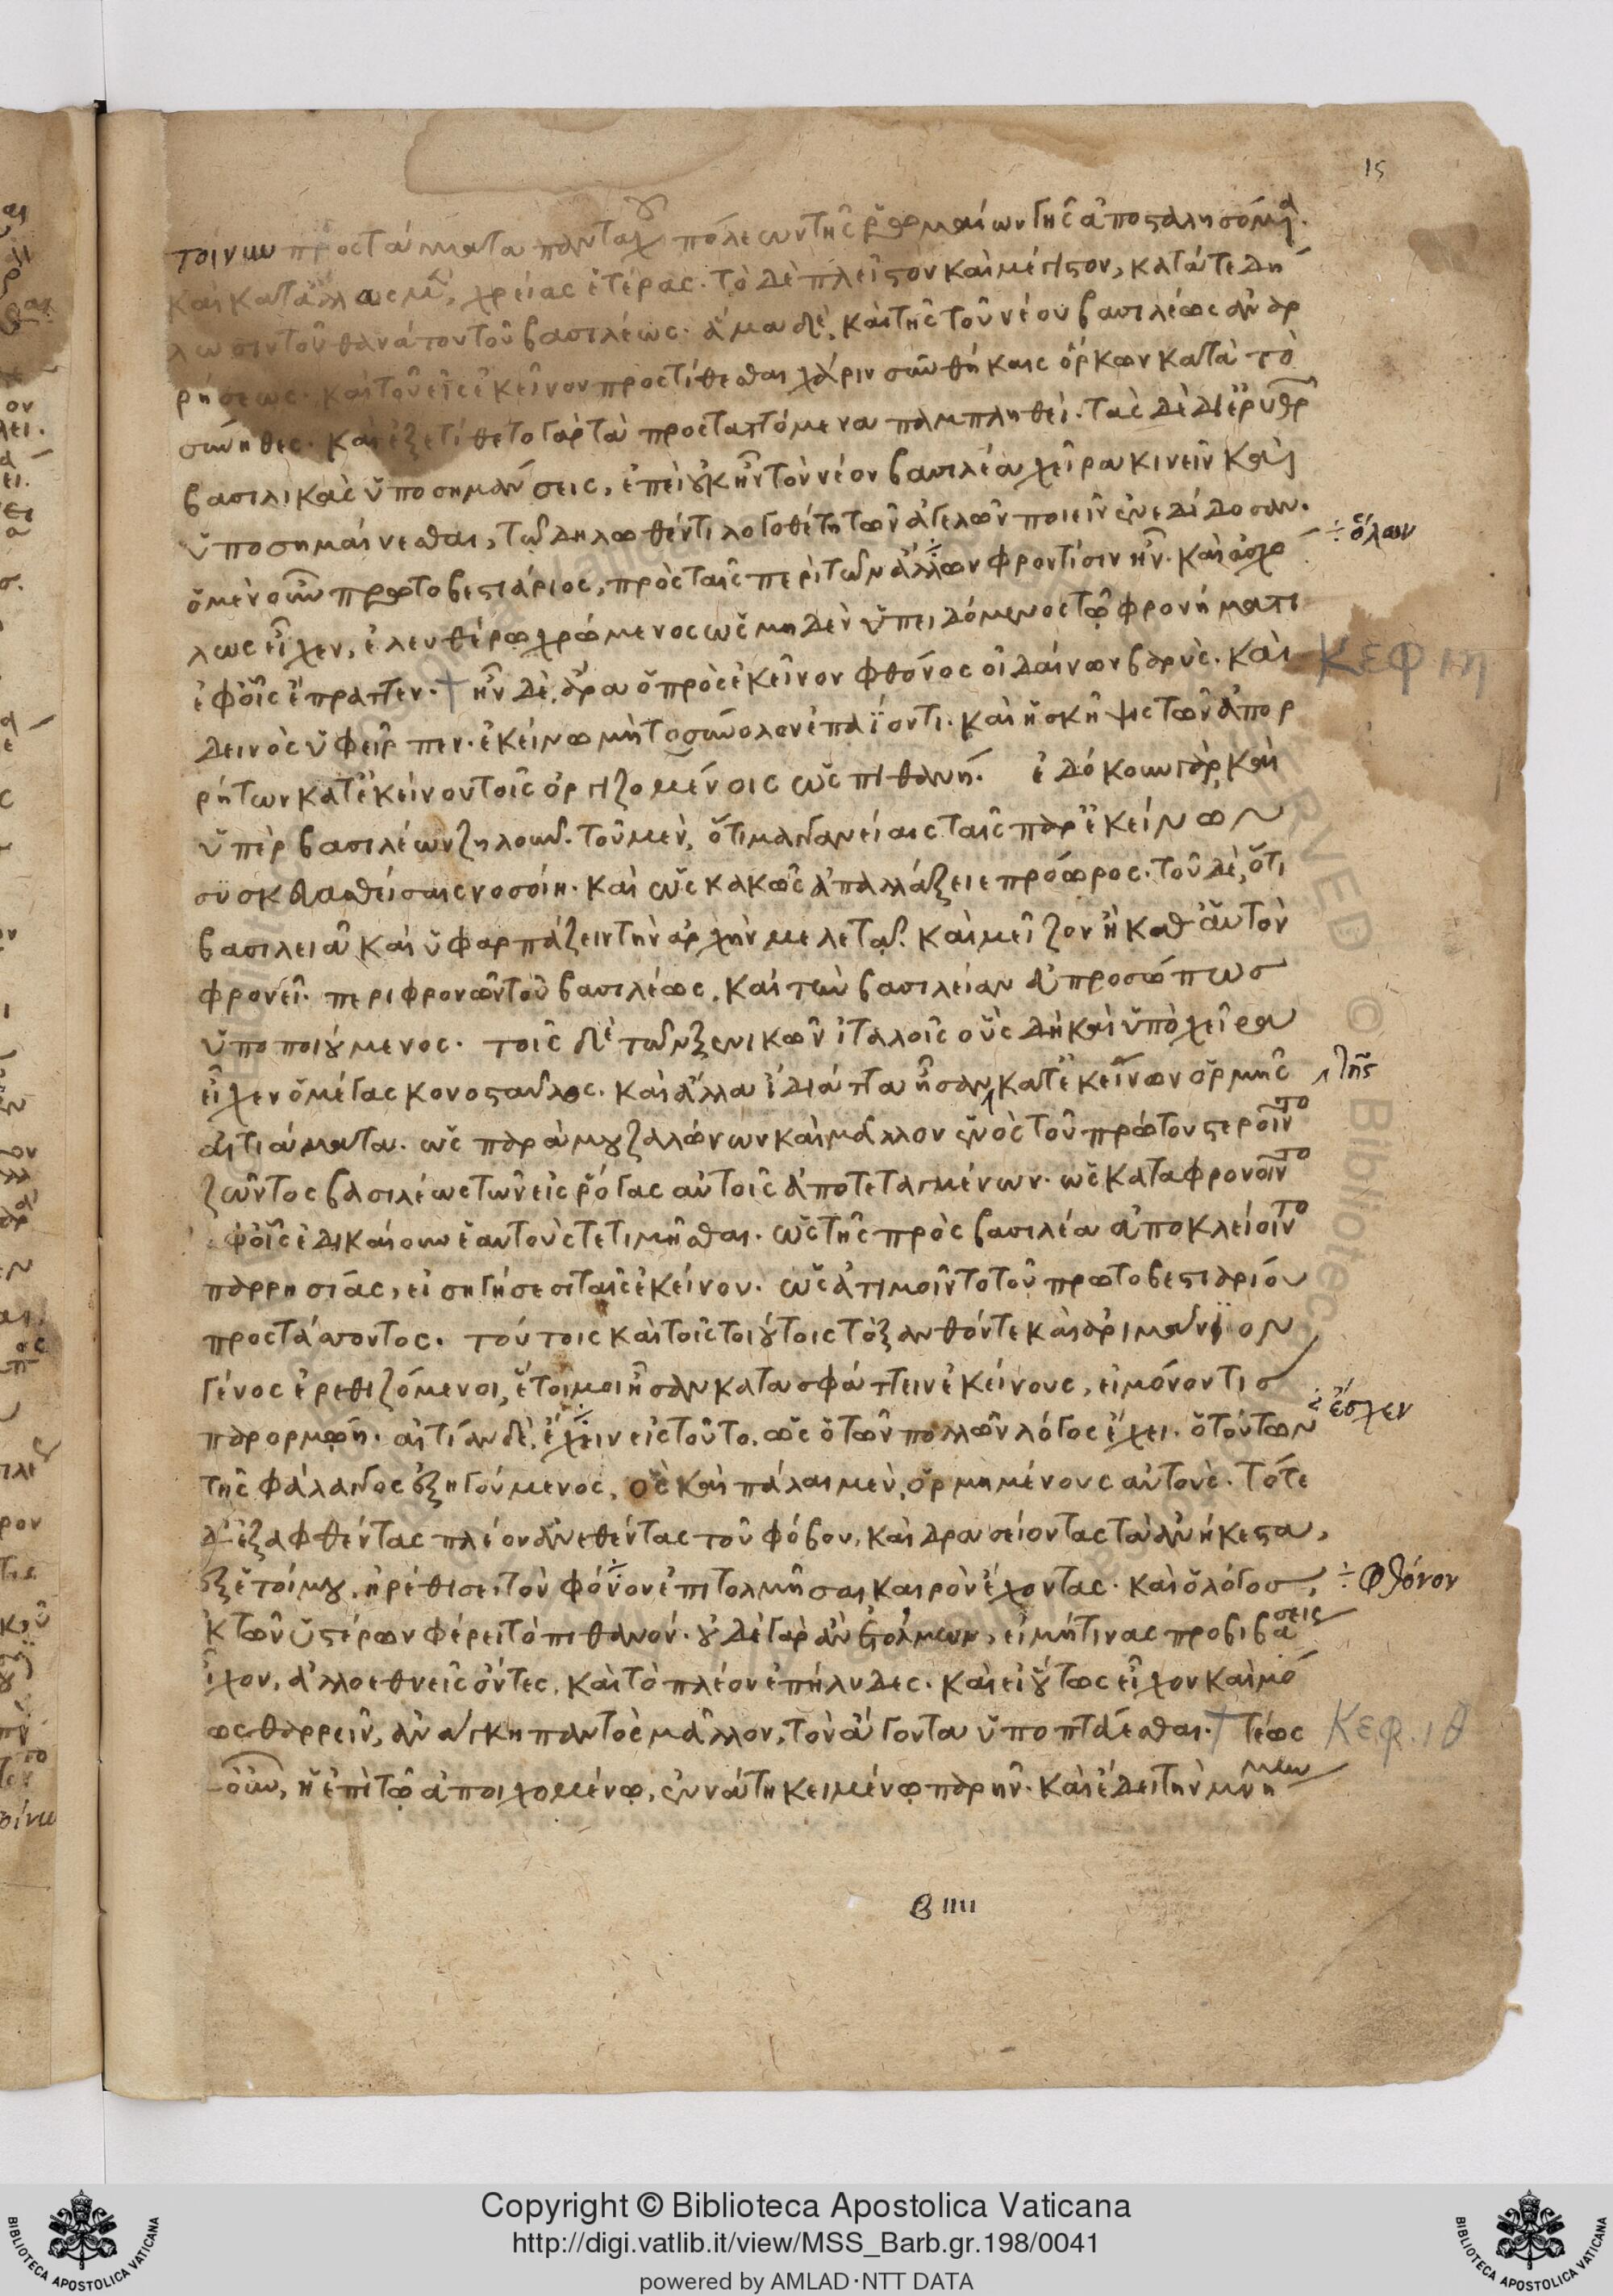 15
τοίνυν προστάγματα πανταχοῦ πόλεων τῆς ῥωμαίων γῆς ἀποσταλησόμενα.
καὶ κατ' ἄλλας μὲν χρείας ἑτέρας. τὸ δὲ πλεῖστον καὶ μέγιστον, κατά τε δή
λωσιν τοῦ θανάτου τοῦ βασιλέως. ἅμα δὲ, καὶ τῆς τοῦ νέου βασιλέως ἀναρ
ρήσεως. καὶ τοῦ εἰς ἐκεῖνον προστίθεσθαι χάριν συνθήκαις ὅρκων κατὰ τὸ
σύνηθες. καὶ ἐξετίθετο γὰρ τὰ προσταττόμενα παμπληθεὶ. τὰς δὲ δι' ἐρυθρῶν
βασιλικὰς ὑποσημάνσεις, ἐπεὶ οὐκ ἦν τὸν νέον βασιλέα χεῖρα κινεῖν καὶ
ὑποσημαίνεσθαι, τῶ δηλωθέντι λογοθέτη τῶν ἀγελῶν ποιεῖν ἐνεδίδοσαν.
ὁ μὲν οὖν πρωτοβεστιάριος, πρὸς ταῖς περὶ τῶν ἄλλων φροντίσιν ἦν. καὶ ἀσχό
÷ ὅλων
λως εἶχεν, ἐλευθέρω χρώμενος ὡς μηδὲν ὑπειδόμενος τῶ φρονήματι
ἐφ' οἷς ἔπραττεν. † ἦν δὲ ἄρα ὁ πρὸς ἐκεῖνον φθόνος οἰδαίνων βαρὺς. καὶ
ΚΕΦ ιη
δεινὸς ὑφεῖρπεν. ἐκείνω μὴ τοσύνολον ἐπαΐοντι. καὶ ἡ σκῆψις τῶν ἀπορ
ρήτων κατ' ἐκείνου τοῖς ὀργιζομένοις ὡς πιθανή. ἐδόκουν γὰρ καὶ
ὑπὲρ βασιλέων ζηλοῦν. τοῦ μὲν, ὅτι μαγγανείαις ταῖς παρ' ἐκείνων
συσκευασθείσαις νοσοίη. καὶ ὡς κακῶς ἀπαλλάξειε πρόωρος. τοῦ δὲ, ὅτι
βασιλειᾶ καὶ ὑφαρπάζειν τὴν ἀρχὴν μελετᾶ. καὶ μεῖζον ἢ καθ' αὑτὸν
φρονεῖ. περιφρονῶν τοῦ βασιλέως. καὶ τὴν βασιλείαν ἀπροσώπως
ὑποποιούμενος. τοῖς δὲ τῶν ξενικῶν ἰταλοῖς οὓς δὴ καὶ ὑπὸ χεῖρα
εἶχεν ὁ μέγας κονοσταῦλος. καὶ ἄλλα ἰδιά ττα ἦσαν κατ' ἐκείνων ὁρμῆς
τῆς
αἰτιάματα. ὡς παρὰ μουζαλώνων καὶ μᾶλλον ἑνὸς τοῦ πρώτου στεροῖντο
ζῶντος βασιλέως τῶν εἰς ῥόγας αὐτοῖς ἀποτεταγμένων. ὡς καταφρονοῖντο
ἐφ' οἷς ἐδικαίουν ἑαυτοὺς τετιμῆσθαι. ὡς τῆς πρὸς βασιλέα ἀποκλείοιντο
παρρησίας, εἰσηγήσεσι ταῖς ἐκείνου. ὡς ἀτιμοῖντο τοῦ πρωτοβεστιαρίου
προστάττοντος. τούτοις καὶ τοῖς τοιούτοις τὸ ξανθόν τε καὶ ἀρειμάνιον
γένος ἐρεθιζόμενοι, ἕτοιμοι ἦσαν κατασφάττειν ἐκείνους, εἰ μόνον τις
παρορμώη. αἰτίαν δὲ, ἔχειν εἰς τοῦτο. ὡς ὁ τῶν πολλῶν λόγος ἔχει. ὁ τούτων
÷ ἔσχεν
τῆς φάλαγγος ἐξηγούμενος, ὃς καὶ πάλαι μὲν, ὁρμημένους αὐτοὺς. τότε
δ' ἐξαφθέντας πλέον ἀνεθέντας τοῦ φόβου, καὶ δρασείοντας τὰ ἀνήκεστα,
ἐξ ἑτοίμου, ἠρέθισεν τὸν φόνον ἐπιτολμῆσαι καιρὸν ἔχοντας. καὶ ὁ λόγος,
÷ φθόνον
ἐκ τῶν ὑστέρων φέρει τὸ πιθανόν. οὐδὲ γὰρ ἂν ἐτόλμων, εἰ μή τινας προβιβάσεις
εἶχον, ἀλλοεθνεῖς ὄντες, καὶ τὸ πλέον ἐπήλυδες. καὶ εἰ οὕτως εἶχον καὶ μό
ως θαρρεῖν, ἀνάγκη παντὸς μᾶλλον, τὸν ἄγοντα ὑποπτεύεσθαι. † τέως
ΚΕΦ. ιθ
οὖν, ἡ ἐπὶ τῶ ἀποιχομένω, ἐννάτη κειμένω παρῆν. καὶ ἔδει τὴν μνήμην
β ιιιι
Copyright © Biblioteca Apostolica Vaticana
http://digi.vatlib.it/view/MSS_Barb.gr.198/0041
powered by AMLAD·NTT DATA